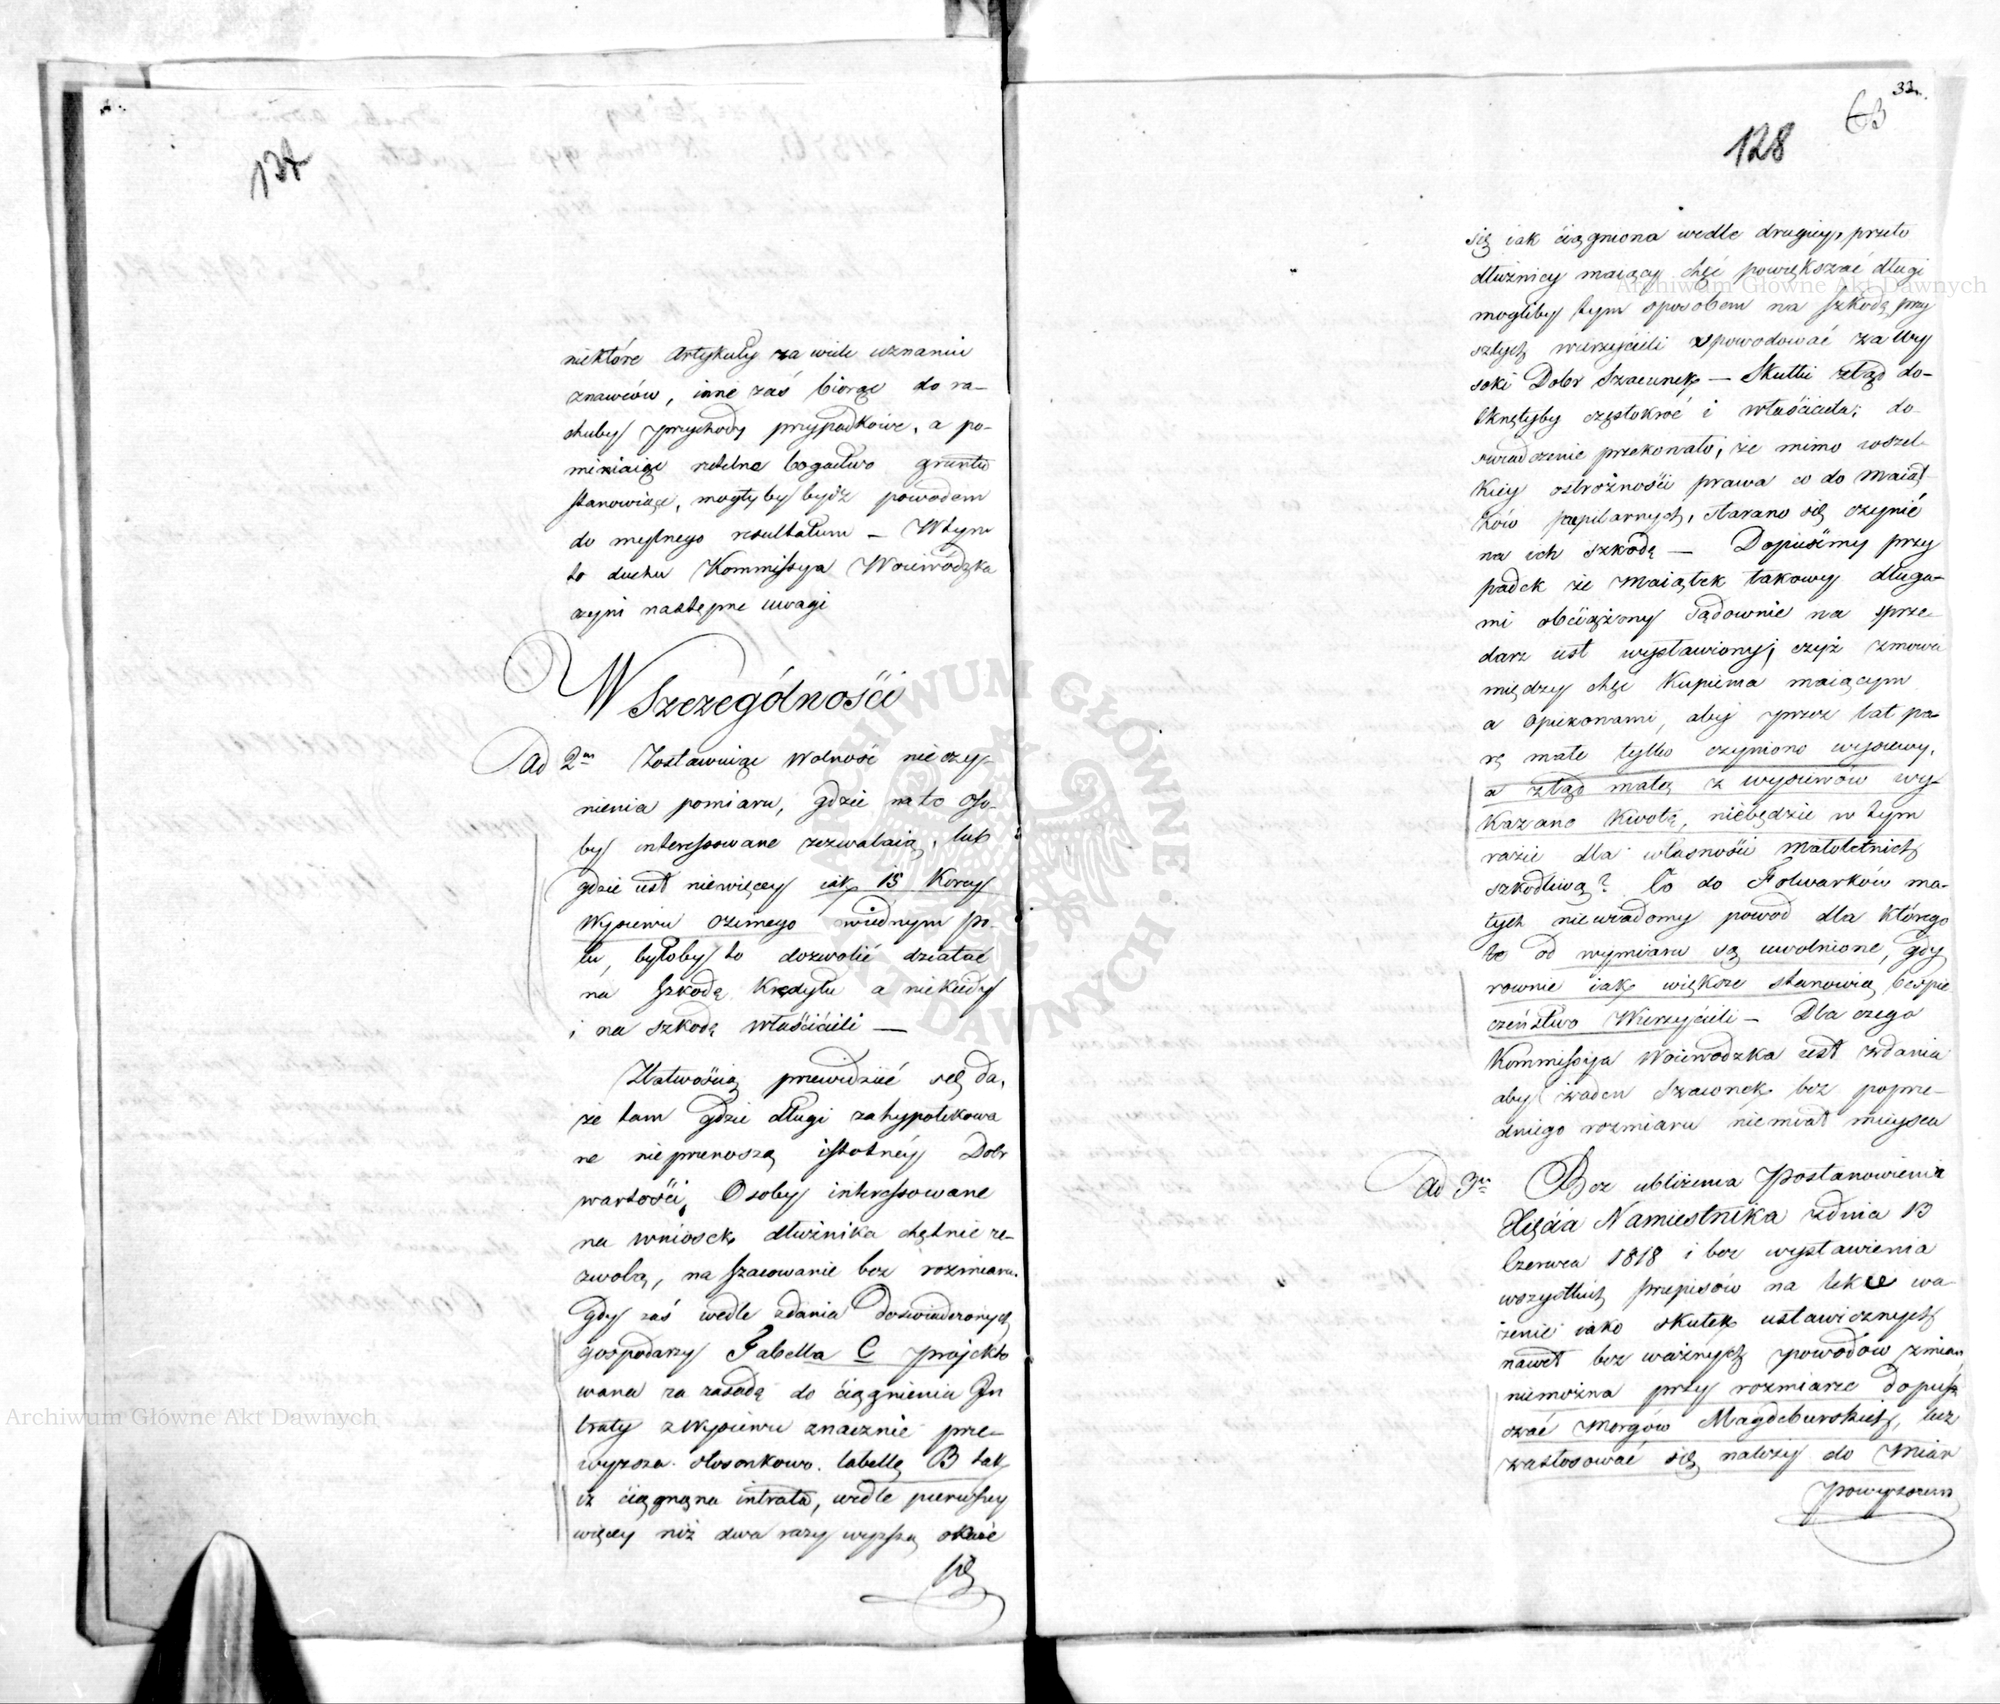 127
niektóre Artykuły za wiele uznaniu
znawców, inne zaś biorąc do ra-
chuby przychody przypadkowe, a po-
miniaiąc rzetelne bogactwo gruntu
stanowiące, mogłyby bydź powodem
do mylnego resultatum – W tym
to duchu Kommissya Woiewodzka
czyni następne uwagi
W Szczególności
Ad 2um Zostawuiąc Wolność nieczy-
nienia pomiaru, gdzie na to oso-
by interessowane zezwalaią, lub
gdzie iest niewięcey iak 15 Korcy
Wysiewu ozimego w iednym po-
lu, byłoby to dozwolić działać
na szkodę Kredytu a niekiedy
i na szkodę właścicieli —
Z łatwością przewidzieć się da,
że tam gdzie długi zahypotekowa
ne nieprzenoszą istotnéy Dobr
wartości, Osoby interessowane
na wniosek dłużnika chętnie ze-
zwolą, na szacowanie bez rozmiaru.
Gdy zaś wedle zdania doświadczonych
gospodarzy Tabella C projekto
wana za zasadę do ciągnienia In
traty z Wysiewu znacznie prze-
wyższa stosonkowo tabellę B tak
iż ciągnęna intrata, wedle pierwszey
więcey niż dwa razy wyższą okaże
się
33.
63
128
się iak ciągniona wedle drugiey, przeto
dłużnicy maiący chęć powiększać długi
mogliby tym sposobem na szkodę przy
szłych wierzycieli spowodować za wy
soki Dobr Szacunek — Skutki ztąd do-
tknęłyby częstokroć i właściciela; do-
swiadczenie przekonało, że mimo wszel-
kiey ostrożności prawa co do Maiąt
ków pupilarnych, starano się czynić
na ich szkodę — Dopuśćmy przy
padek że Maiątek takowy długa-
mi obciążony Sądownie na sprze-
darz iest wystawiony; czyż zmowa
między chęć Kupienia maiącym
a Opiekonami, aby przez lat pa-
rę małe tylko czyniono wysiewy,
a ztąd małą z wysiewów wy-
kazano Kwotę, niebędzie w tym
razie dla własności małoletnich
szkodliwą? Co do Folwarków ma-
łych niewiadomy powod dla którego
te od wymiaru są uwolnione, gdy
rownie iak większe stanowią bespie
czeństwo Wierzycieli – Dla czego
Kommissya Woiewodzka iest zdania
aby żaden Szacunek bez poprze-
dniego rozmiaru niemiał mieysca
Ad 3um Bez ubliżenia Postanowienia
Xięcia Namiestnika z dnia 13
Czerwca 1818 i bez wystawienia
wszystkich przepisów na lekce wa-
żenie iako skutek ustawicznych
nawet bez ważnych powodów zmian
niemożna przy rozmiarze dopusz
czać Morgów Magdeburskich, lecz
zastosować się należy do Miar
powyższem